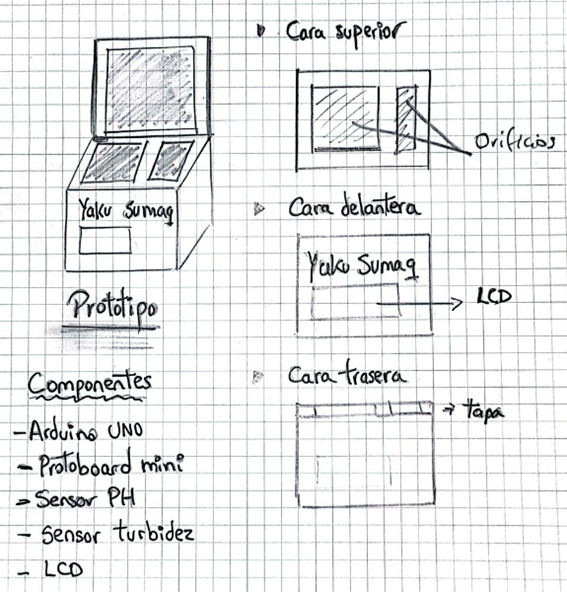 Yaku Sumaq
Prototipo
Componentes
- Arduino UNO
- Protoboard mini
- Sensor PH
- Sensor turbidez
- LCD
Cara superior
Orificios
Cara delantera
Yaku Sumaq
LCD
Cara trasera
tapa